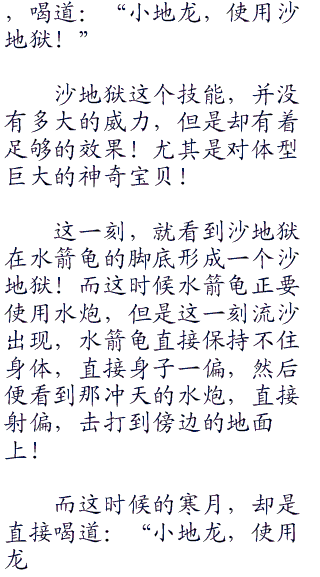 ，喝道：“小地龙，使用沙
地狱！”
沙地狱这个技能，并没
有多大的威力，但是却有着
足够的效果！尤其是对体型
巨大的神奇宝贝！
这一刻，就看到沙地狱
在水箭龟的脚底形成一个沙
地狱！而这时候水箭龟正要
使用水炮，但是这一刻流沙
出现，水箭龟直接保持不住
身体，直接身子一偏，然后
便看到那冲天的水炮，直接
射偏，击打到傍边的地面
上！
而这时候的寒月，却是
直接喝道：“小地龙，使用
龙